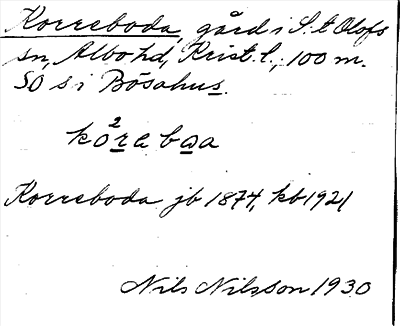 Korreboda, gård i S:t Olofs
sn, Albo hd, Krist. l., 100 m.
SO s i Bösahus.
Korreboda jb 1874, kb 1921
Nils Nilsson 1930